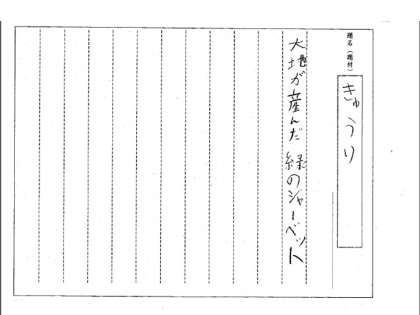 題名（題材）
きゅうり
大地が産んだ 緑のシャーベット